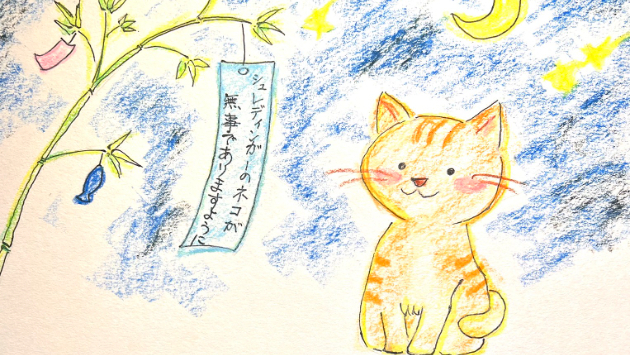 シュレディンガーのネコが
無事でありますように